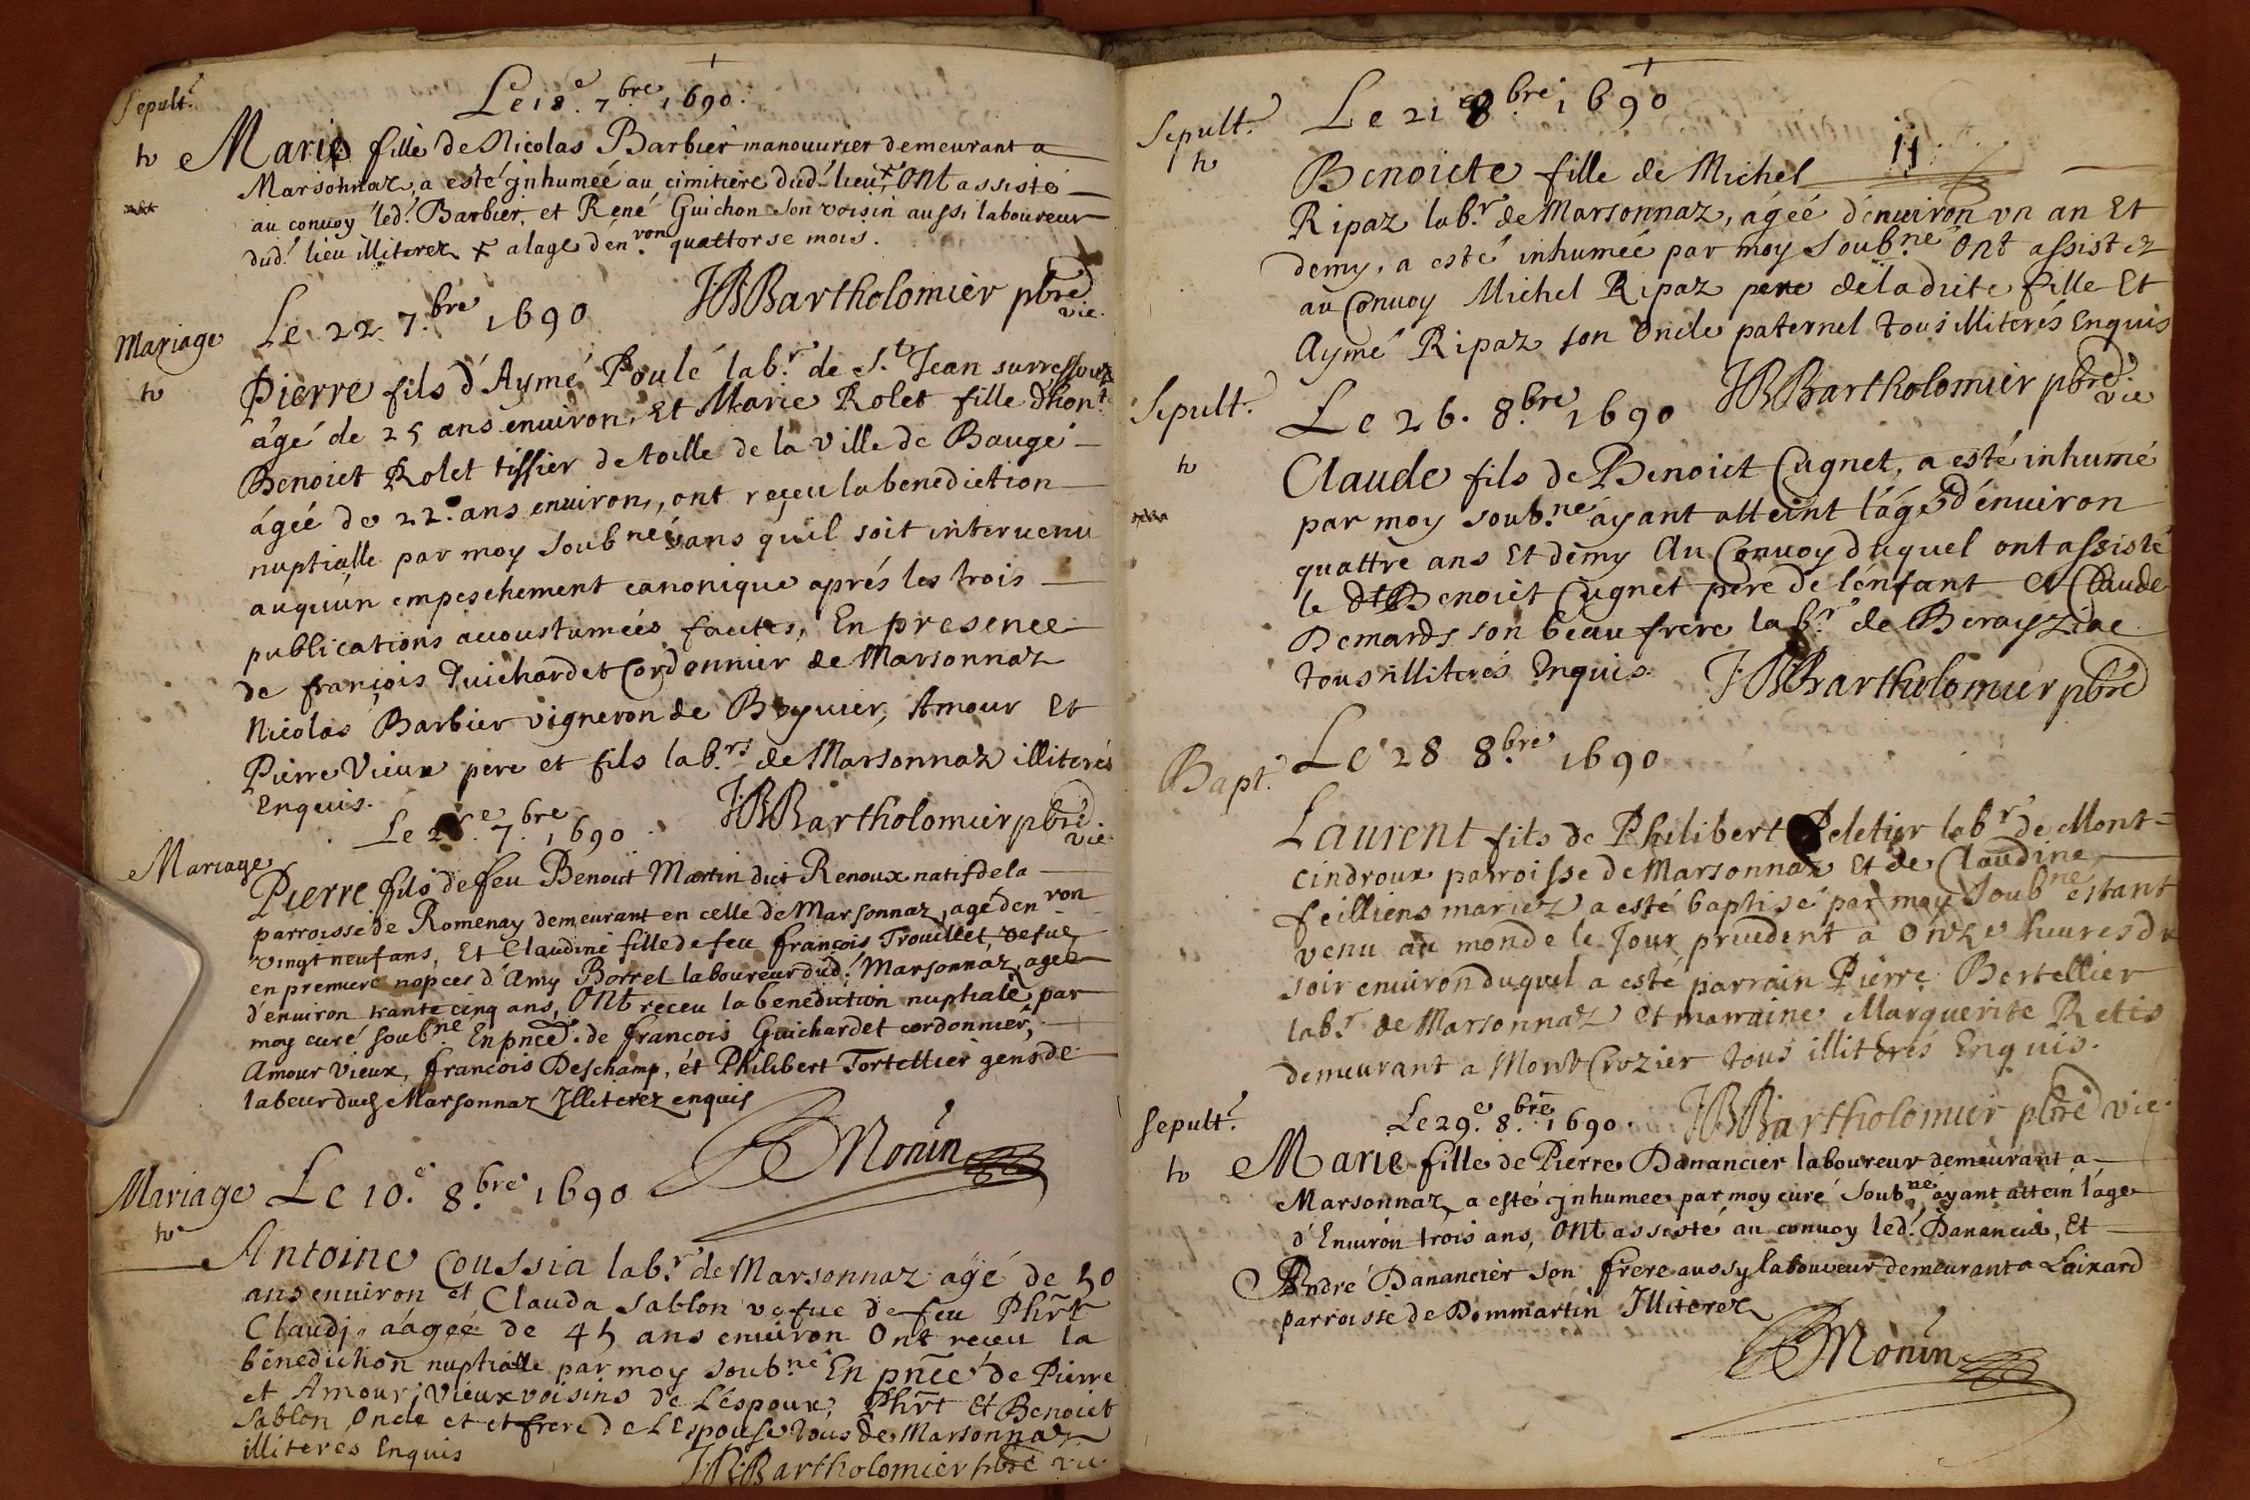 Sepult.e
Le 18.e 7.bre 1690.
Marie fille de Nicolas Barbier manouurier demeurant a
Marsonnaz, a esté jnhumeé au cimitiere dud. lieu, + Ont assisté
au conuoy led. Barbier, et René Guichon son voisin aussi laboureur
dud. lieu illiterez + a lage d'en.von quattorse mois.
JBBartholomier pbre
vie.
Mariage
Le 22. 7.bre 1690
Pierre fils d'Aymé Poulé lab.r de S.t Jean surressouze
âgé de 25 ans enuiron, Et Marie Rolet fille d'hon.t
Benoict Rolet tissier de toille de la ville de Baugé
ágeé de 22. ans enuiron, ont reçeu la benediction
nuptialle par moy soubné sans qu'il soit interuenu
auqu'un empeschement canonique aprés les trois
publications accoustumeés faites, En presence
de françois Guichardet Cordonnier de Marsonnaz
Nicolas Barbier vigneron de Beyuier, Amour Et
Pierre Vieux pere et fils lab.rs de Marsonnaz illiterés
Enquis.
JBBartholomier pbre
vie
Mariage
Le e 7.bre 1690
Pierre fils de feu Benoict Martin dict Renoux natif de la
parroisse de Romenay demeurant en celle de Marsonnaz, agé d'en von
vingt neuf ans, Et Claudine fille de feu françois Trouillet, vefue
en premiere nopces d'Amy Borrel laboureur dud. Marsonnaz, ageé
d'enuiron trante cinq ans, Ont receu la benediction nuptiale, par
moy curé soub.né En pnce. de françois Guichardet cordonnier,
Amour Vieux, françois Deschamp, et Philibert Tortellier gens de
labeur dud Marsonnaz Illiterez enquis
Monin
Mariage
Le 10.e 8.bre 1690
Antoine Coussia lab.r de Marsonnaz agé de 50
ans enuiron et Clauda Sablon vefue de feu Phirt
Claudj, aágeé de 45 ans enuiron Ont receu la
bénediction nuptialle par moy soub.né En pnce de Pierre
et Amour Vieux voisins de L'éspoux, Phirt Et Benoict
Sablon Oncle et et frere de L'Espouse Tous de Marsonnaz
illiterés Enquis
JBBartholomier pbre vie
Sepult.e
Le 21 8.bre 1690
11
Benoicte fille de Michel
Ripaz lab.r de Marsonnaz, ágeé d'enuiron vn an Et
demy, a esté inhumeé par moy Soub.né Ont assistez
au Conuoy Michel Ripaz pere de ladicte fille Et
Aymé Ripaz son Oncle paternel Tous illiterés Enquis
JBBartholomier pbre
vie
Sepult.e
Le 26. 8.bre 1690
Claude fils de Benoict Cugnet, a esté inhumé
par moy soub.né ayant atteint l'âge d'énuiron
quattre ans Et demy Au Conuoy duquel ont assisté
le Benoict Cugnet pere de l'énfant Et Claude
Demards son beau frere lab.r de Berayziae
Tous illiterés Enquis.
JBBartholomier pbre
Bapt.
Le 28 8.bre 1690
Laurent fils de Philibert Peletier lab.r de Mont-
cindroux parroisse de Marsonnaz Et de Claudine
feilliens mariez a esté baptisé par moy Soub.né estant
venu au monde le Jour precedent a Onze heures du
soir enuiron duquel a esté parrain Pierre Bertellier
lab.r de Marsonnaz et marraine Marguerite Retis
demeurant a MontCrozier Tous illiterés Enquis.
JBBartholomier pbre vie.
Sepult.e
Le 29.e 8.bre 1690.
Marie fille de Pierre Danancier laboureur demeurant a
Marsonnaz, a esté jnhumee par moy curé Soub.né, ayant attein l'áge
d'Enuirón trois ans, Ont assisté au conuoy led. Danancié, Et
André Danancier son frere aussy laboureur demeurant a Laixard
parroisse de Dommartin Illiterez
Monin